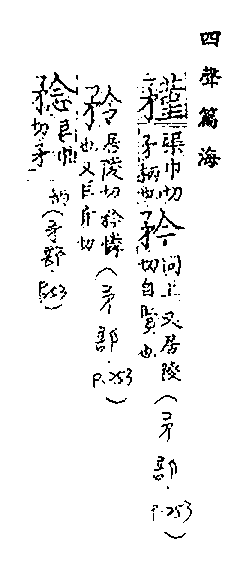 四聲篇海
𥎊渠巾切矛柄也矜同上又居陵切自賢也(矛部.P.253)
矝居陵切矜憐也又巨斤切(矛部.P.253)
巨巾切矛柄(矛部.P.253)